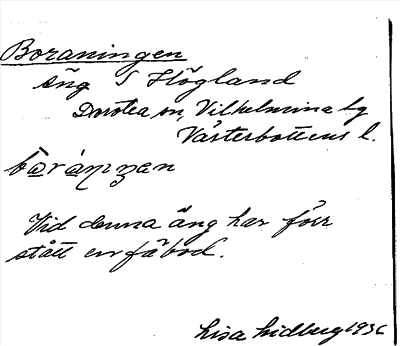 Boraningen
äng i Högland
Dorotea sn, Vilhelmina lg
Västerbottens l.
Vid denna äng har förr
stått en fäbod.
Lisa Lidberg 1936